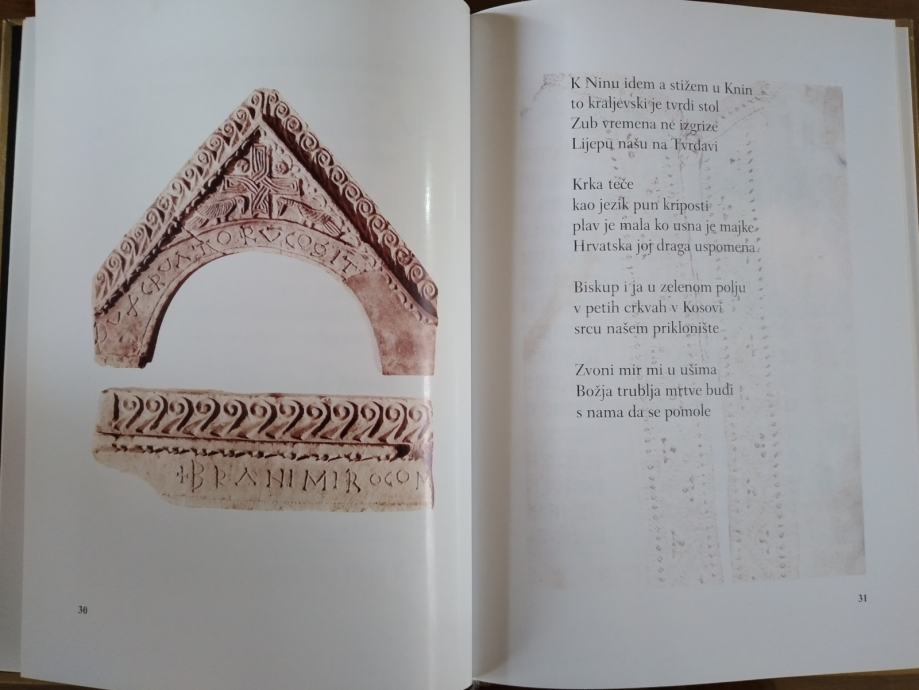 DUX CRUATORU COGIT
+BRANIMIRO COM
30
K Ninu idem a stižem u Knin
to kraljevski je tvrdi stol
Zub vremena ne izgrize
Lijepu našu na Tvrđavi
Krka teče
kao jezik pun kriposti
plav je mala ko usna je majke
Hrvatska joj draga uspomena
Biskup i ja u zelenom polju
v petih crkvah v Kosovi
srcu našem priklonište
Zvoni mir mi u ušima
Božja trublja mrtve budi
s nama da se pomole
31